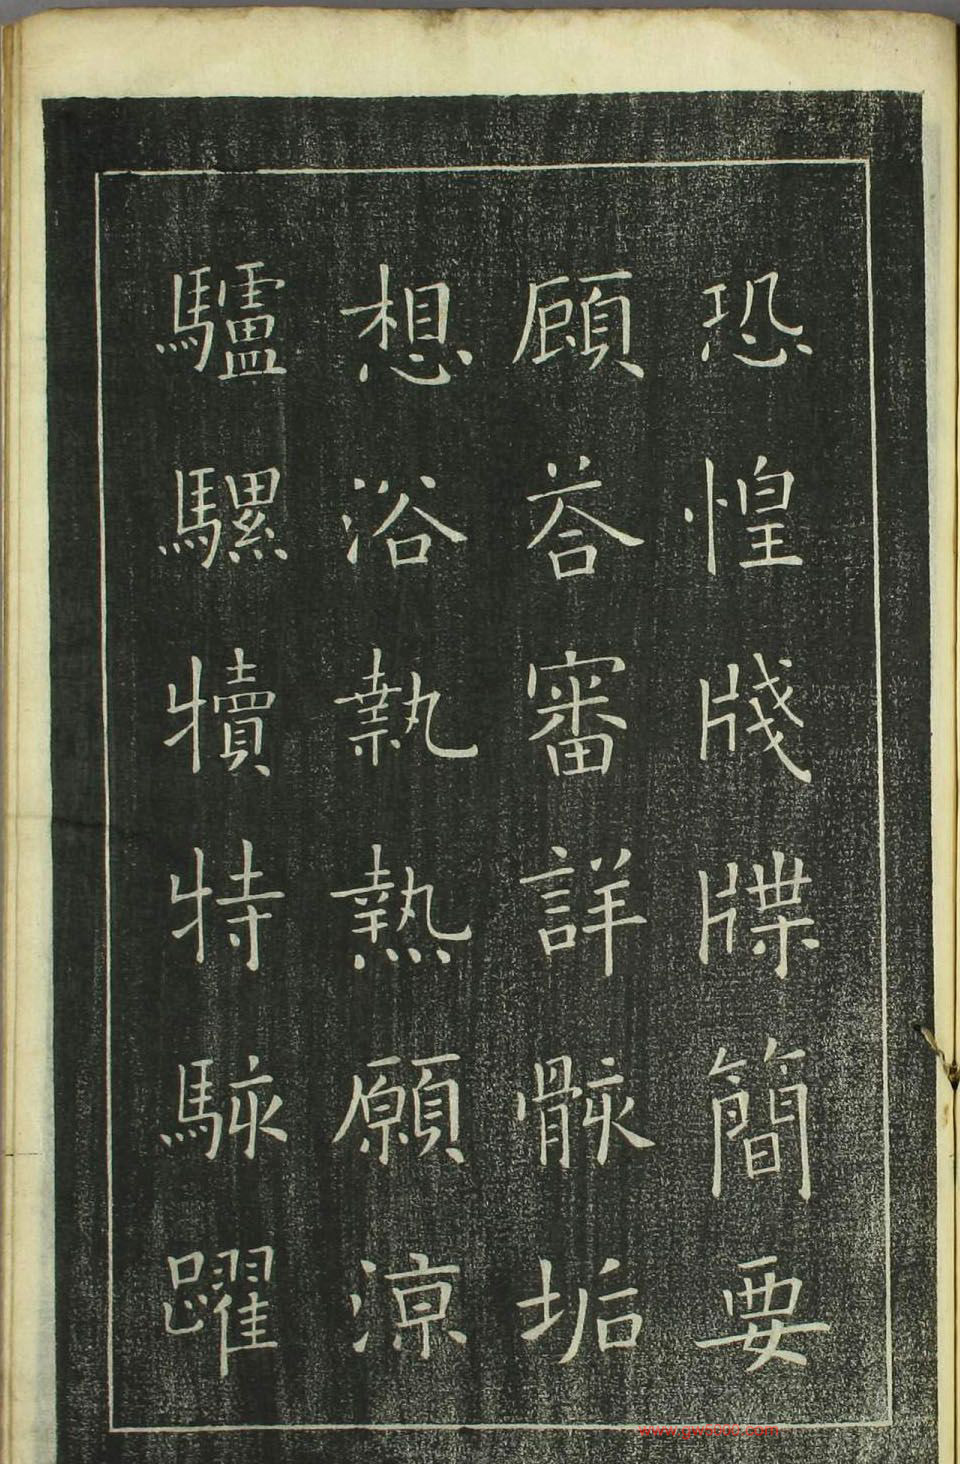 恐惶牋牒簡要
顧荅審詳骸垢
想浴執熱願涼
驢騾犢特駭躍
www.gw5000.com